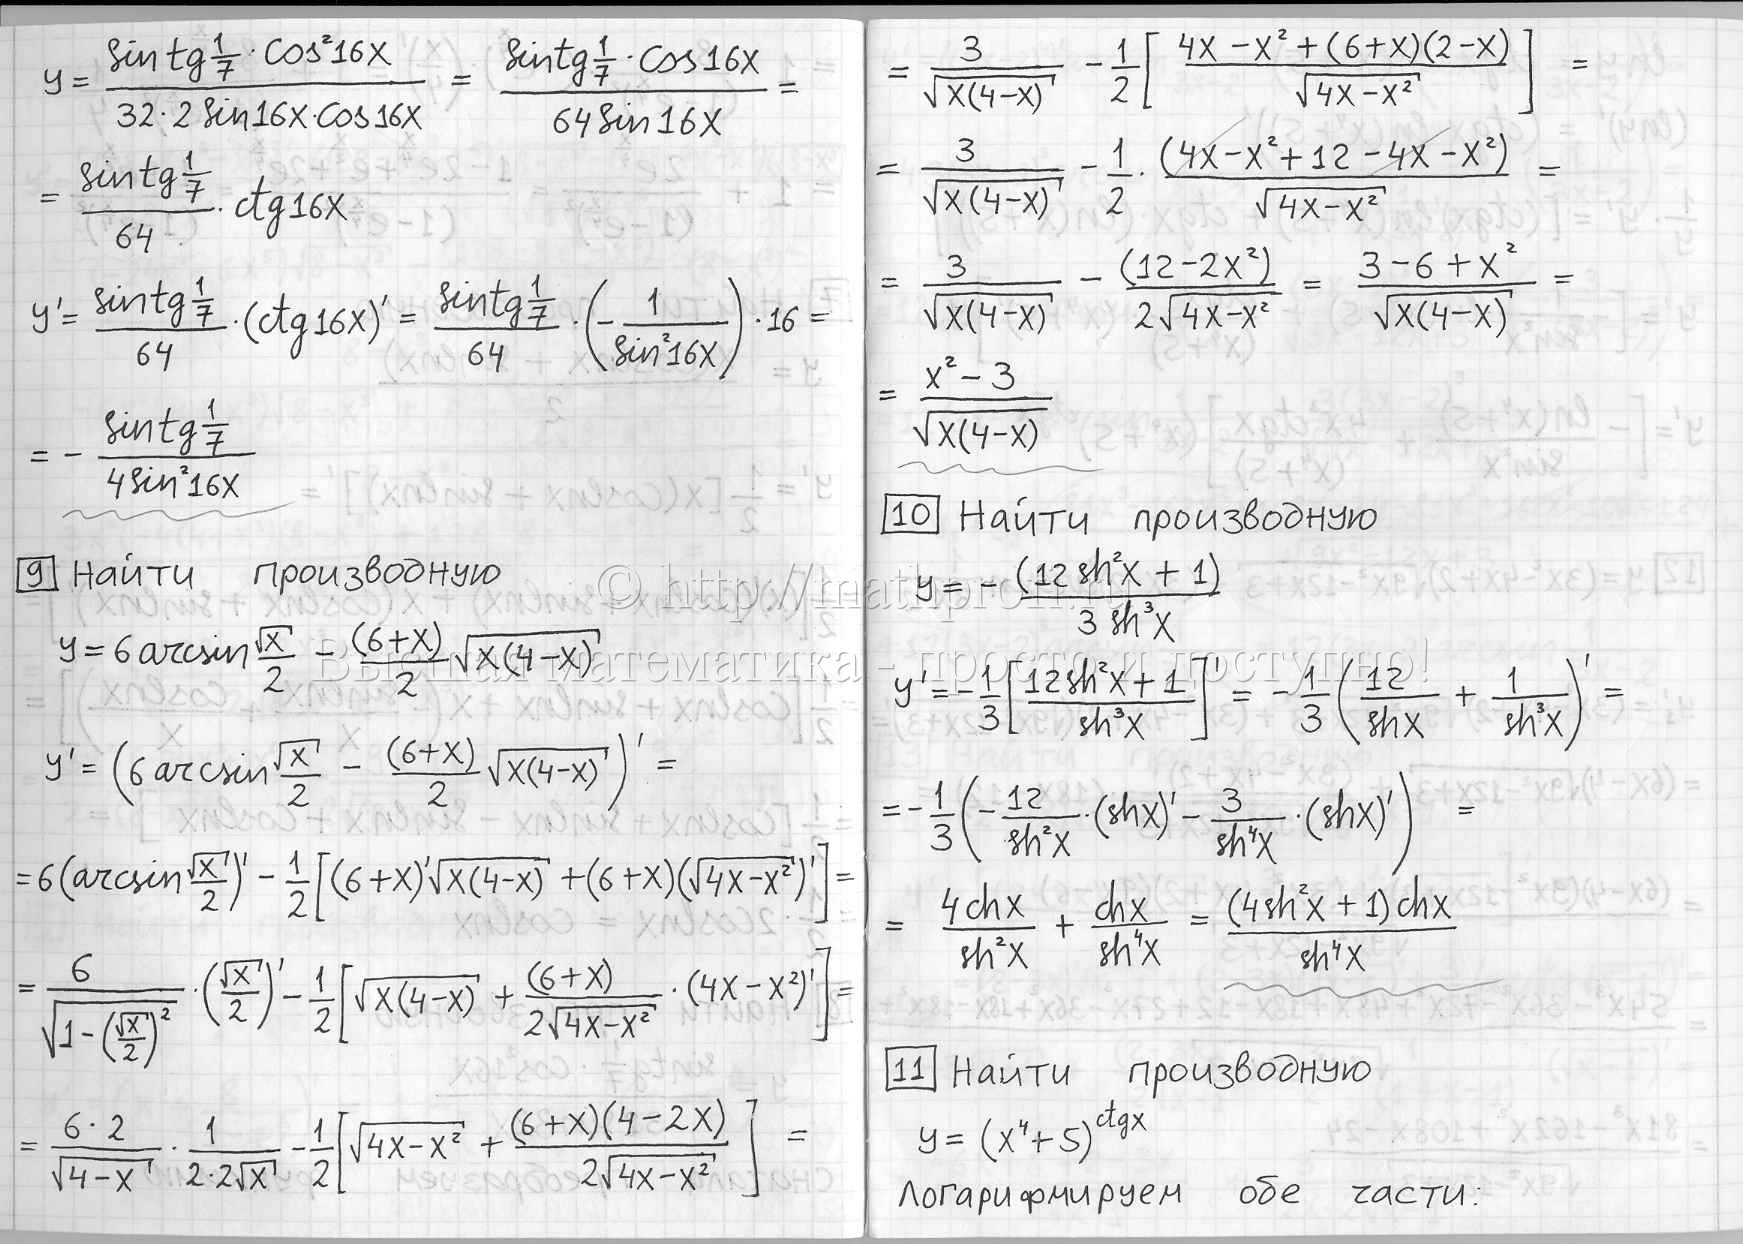 y = (sin tg 1/7 · cos²16x)/(32·2 sin16x·cos16x) = (sin tg 1/7 · cos16x)/(64 sin16x) =
= (sin tg 1/7)/64 · ctg16x
y' = (sin tg 1/7)/64 · (ctg16x)' = (sin tg 1/7)/64 · (−1/(sin²16x)) · 16 =
= − (sin tg 1/7)/(4sin²16x)
9 Найти производную
y = 6 arcsin √x/2 − (6+x)/2 √(x(4−x))
y' = (6 arcsin √x/2 − (6+x)/2 √(x(4−x)))' =
= 6(arcsin √x/2)' − 1/2[(6+x)'√(x(4−x)) + (6+x)(√(4x−x²))'] =
= 6/√(1−(√x/2)²) · (√x/2)' − 1/2[√(x(4−x)) + (6+x)/(2√(4x−x²)) · (4x−x²)'] =
= (6·2)/√(4−x) · 1/(2·2√x) − 1/2[√(4x−x²) + ((6+x)(4−2x))/(2√(4x−x²))] =
= 3/√(x(4−x)) − 1/2[(4x−x²+(6+x)(2−x))/√(4x−x²)] =
= 3/√(x(4−x)) − 1/2 · (4x−x²+12−4x−x²)/√(4x−x²) =
= 3/√(x(4−x)) − (12−2x²)/(2√(4x−x²)) = (3−6+x²)/√(x(4−x)) =
= (x²−3)/√(x(4−x))
10 Найти производную
y = − (12sh²x + 1)/(3 sh³x)
y' = −1/3[(12sh²x+1)/(sh³x)]' = −1/3(12/(shx) + 1/(sh³x))' =
= −1/3(−12/(sh²x)·(shx)' − 3/(sh⁴x)·(shx)') =
= (4chx)/(sh²x) + (chx)/(sh⁴x) = ((4sh²x+1)chx)/(sh⁴x)
11 Найти производную
y = (x⁴+5)^ctgx
Логарифмируем обе части:
© http://mathprofi.ru
Высшая математика - просто и доступно!